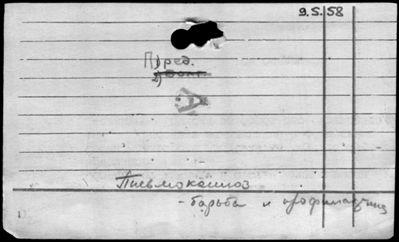 9.5.58
1) Пред.
2)
Пневмокониоз
- борьба и профилактика